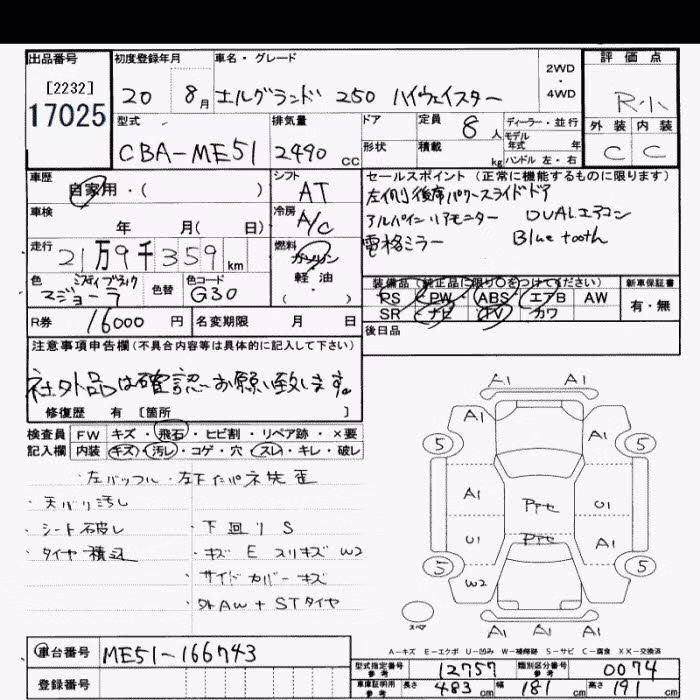 出品番号
[2232]
17025
初度登録年月
20 8月
車名・グレード
エルグランド 250 ハイウェイスター
2WD
・
4WD
評価点
R・小
外装 内装
C C
型式
CBA-ME51
排気量
2490 cc
ドア
形状
定員 8人
積載 kg
ディーラー・並行
モデル
年式 年
ハンドル 左・右
車歴
自家用・( )
車検
年 月( 日)
走行
21万9千359km
シフト
AT
冷房
A/C
燃料
ガソリン
軽油
( )
色
ミスティブラック
マジョーラ
色替
色コード
G30
R券 16000円
名変期限 月 日
セールスポイント(正常に機能するものに限ります)
左側後席パワースライドドア
アルパインリアモニター DUALエアコン
電格ミラー Bluetooth
装備品(純正品に限り○をつけてください)
PS PW ABS エアB AW
SR ナビ TV カワ
新車保証書
有・無
後日品
注意事項申告欄(不具合内容等は具体的に記入して下さい)
社外品は確認お願い致します。
修復歴 有 [箇所 ]
検査員
記入欄
FW キズ・飛石・ヒビ割・リペア跡・×要
内装 キズ・汚レ・コゲ・穴・スレ・キレ・破レ
・天バリ汚レ
・シート破レ
・タイヤ積込
・下回りS
・キズE スリキズW2
・サイドカバーキズ
・外AW+STタイヤ
A1 A1
A1 A1
5 5
A1 U1
U1 A1
5 5
W2
A1 A1 A1
スペア
A-キズ E-エクボ U-凹み W-補修跡 S-サビ C-腐食 XX-交換済
車台番号 ME51-166743
登録番号
型式指定番号
参考
12757
類別区分番号
参考
0074
車庫証明用
参考
長さ 483cm 幅 181cm 高さ 191cm